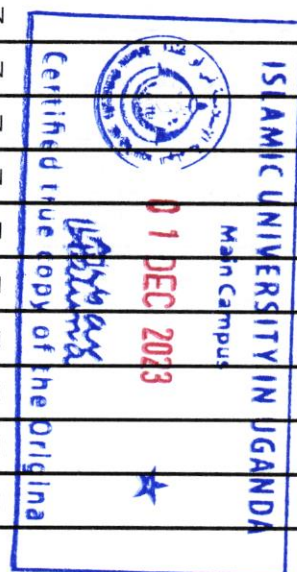 ISLAMIC UNIVERSITY IN UGANDA
Main Campus
01 DEC 2023
Certified true copy of the Origina